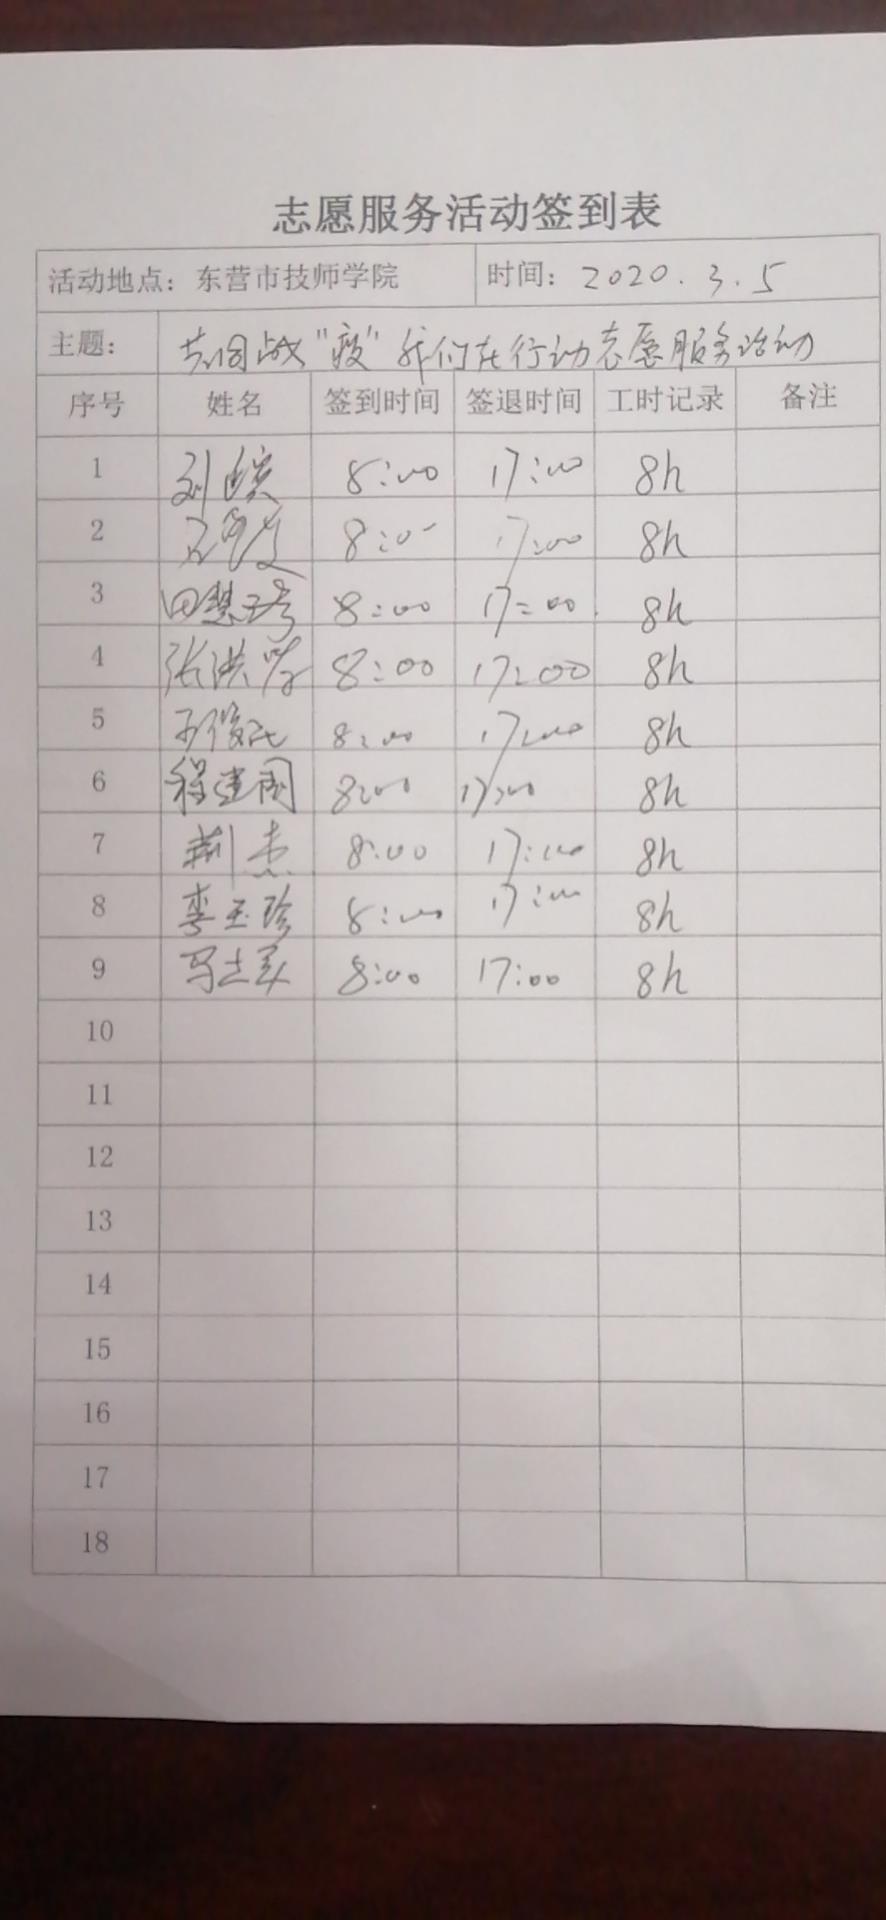 志愿服务活动签到表
活动地点：东营市技师学院 时间：2020.3.5
主题： 共同战"疫"我们在行动志愿服务活动
序号 姓名 签到时间 签退时间 工时记录 备注
1 刘 8:00 17:00 8h
2 8:00 17:00 8h
3 田慧 8:00 17:00 8h
4 张洪 8:00 17:00 8h
5 俊 8:00 17:00 8h
6 程建国 8:00 17:00 8h
7 荆杰 8:00 17:00 8h
8 李玉珍 8:00 17:00 8h
9 马士美 8:00 17:00 8h
10
11
12
13
14
15
16
17
18